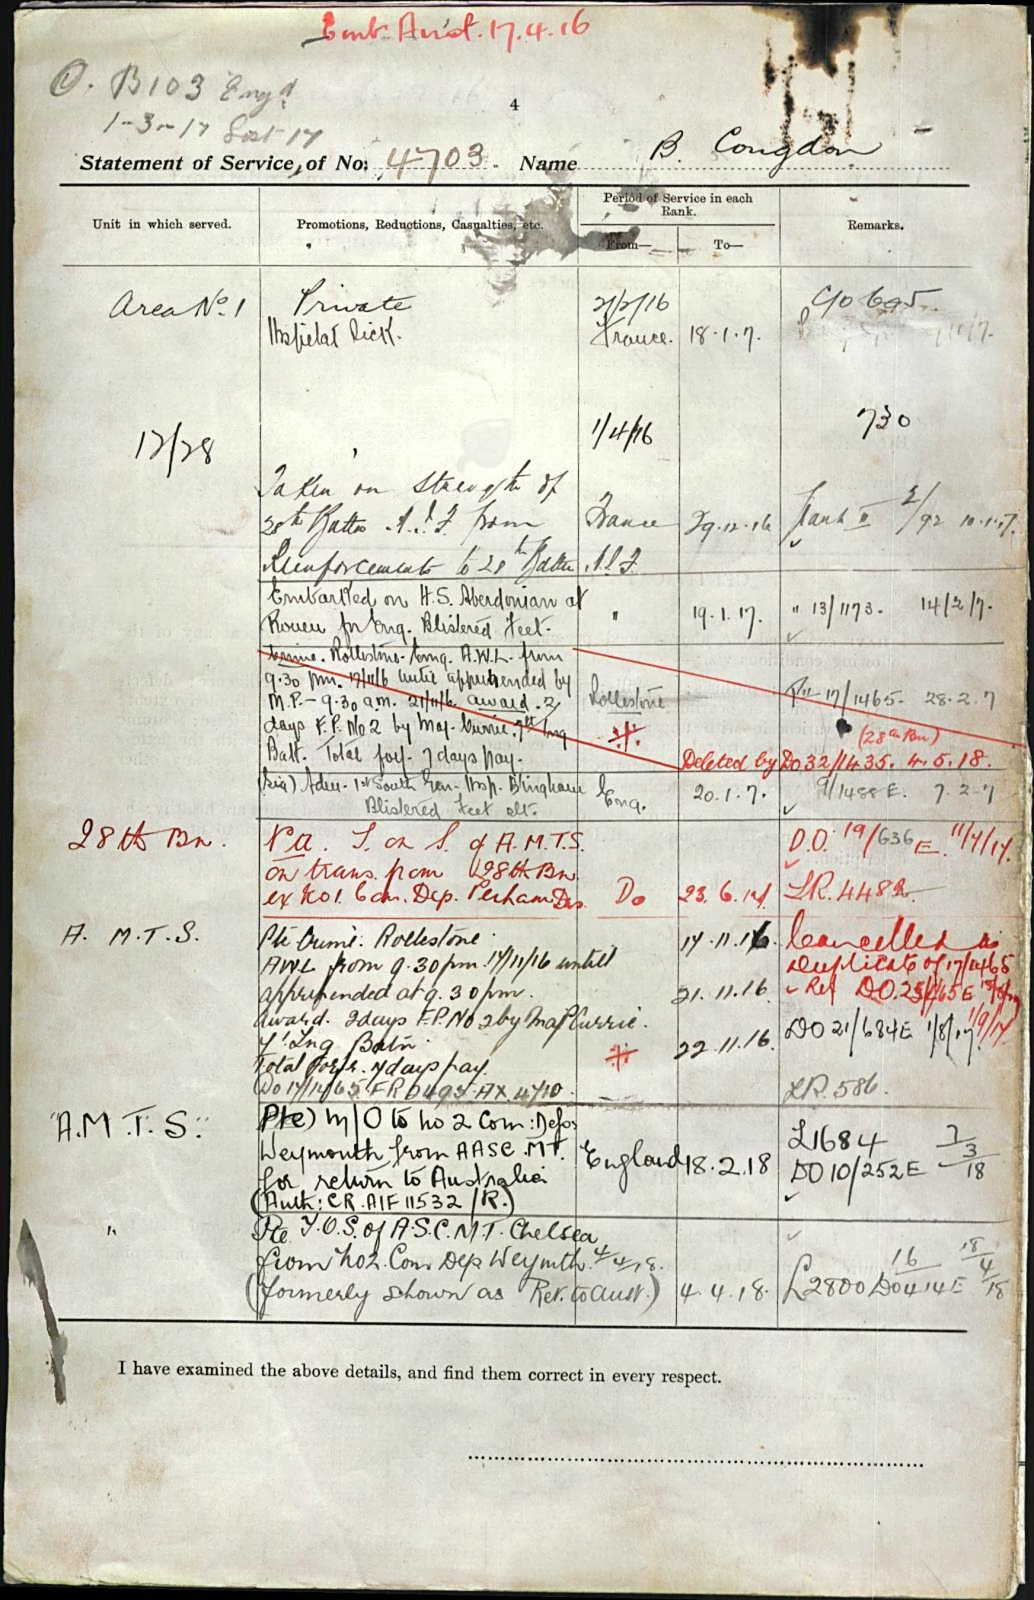 Emb. Aust. 17.4.16
O. B103 Eng'd
1-3-17
4
Statement of Service, of No: 4703. Name B. Congdon
Unit in which served.
Promotions, Reductions, Casualties, etc.
Period of Service in each Rank.
From—
To—
Remarks.
Area No. 1 Private 2/2/16
Hospital Sick. France. 18.1.7.
12/28 1/4/16 730
Taken on strength of
28th Battn A.I.F. from France 29.12.16 Part II 2/92 10.1.17.
Reinforcements to 28th Battn A.I.F.
Embarked on H.S. Aberdonian at
Rouen for Eng. Blistered Feet. " 19.1.17. " 13/1173. 14/2/7.
Crime. Rollestone. Eng. A.W.L. from
9.30 pm. 17/11/16 until apprehended by
M.P. - 9.30 a.m. 21/11/6. award. 2 Rollestone 17/1465. 28.2.7
days F.P. No 2 by Maj. Currie. 7th Trg (28th Bn)
Batt. Total forf. 7 days pay. Deleted by Do 32/1435. 4.5.18.
(Sick) Adm. 1st South Gen. Hosp. B'ingham Eng. 20.1.7. 9/1488 E. 7.2.7
Blistered Feet slt.
28th Bn. Pte. T. on S. of A.M.T.S. D.O. 19/636 E. 11/7/17.
on trans. from 28th Bn
ex No 1. Com. Dep. Perham Dns. Do 23.6.17 LR. 4482
A. M.T.S. Pte Crime. Rollestone. 17.11.16 Cancelled as
AWL from 9.30pm 17/11/16 until Duplicate of 17/1465
apprehended at 9.30pm. 21.11.16. Ref DO.25/
Award. 2days F.P. No 2 by Maj Currie. DO 21/684E 1/8/17.
7' Trg Batn. 22.11.16.
Total forf. 7 days pay
DO 17/1465 LR. 586.
"A.M.T.S." Pte) M/O to No 2 Com: Depot L1684 7/3/18
Weymouth from AASC. MT. England 18.2.18 DO 10/252E
for return to Australia
(Auth: CR. AIF 11532 /R.)
" Pte T.O.S. of A.S.C.M.T. Chelsea
from No 2. Com Dep Weymth. 4/4/18. 16 18/4/18
(formerly shown as Ret. to Aust.) 4.4.18. L2800 DO 414E
I have examined the above details, and find them correct in every respect.